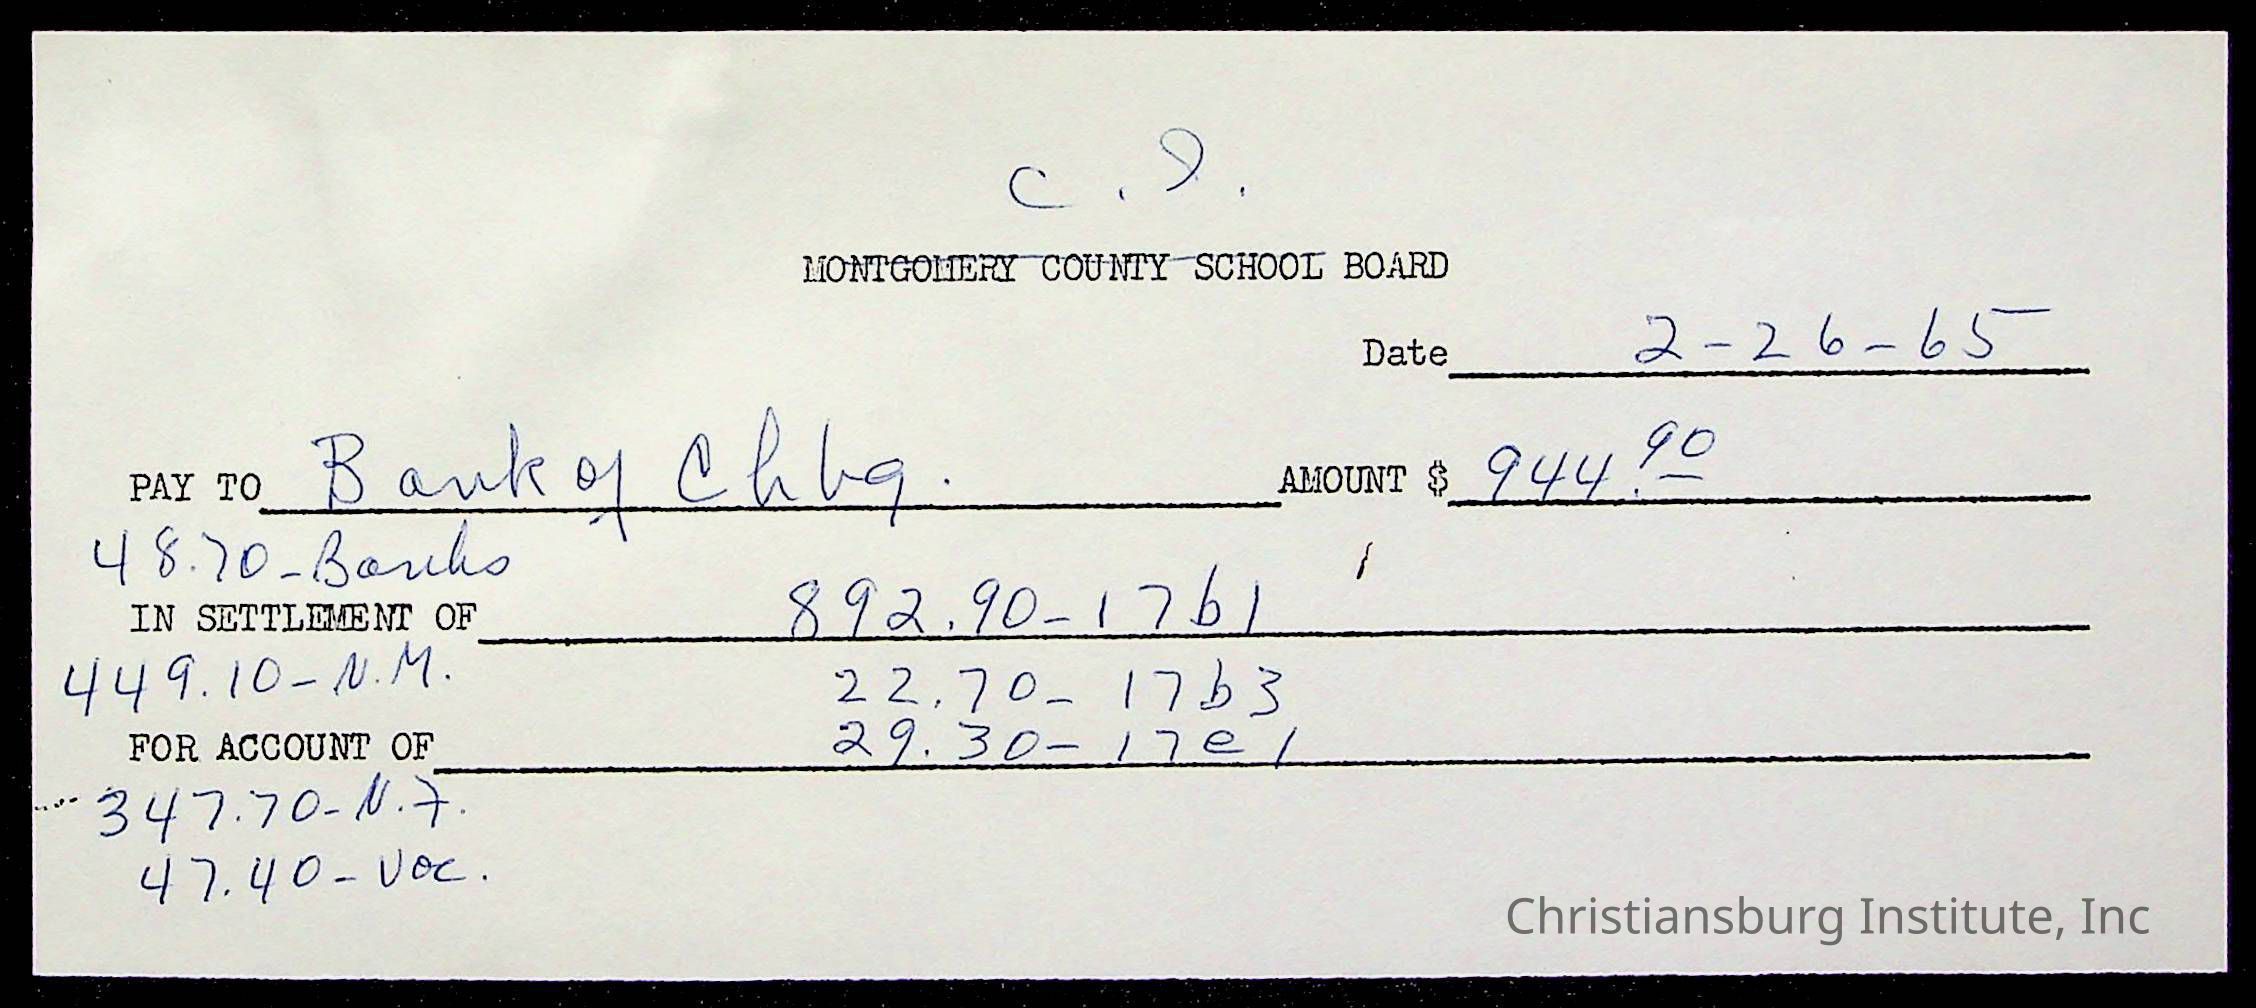 C. I.
MONTGOMERY COUNTY SCHOOL BOARD
Date 2-26-65
PAY TO Bank of Chbg. AMOUNT $ 944.90
48.70-Banks
IN SETTLEMENT OF 892.90-17b1
449.10-N.M. 22.70-17b3
FOR ACCOUNT OF 29.30-17e1
347.70-N.F.
47.40-Voc.
Christiansburg Institute, Inc